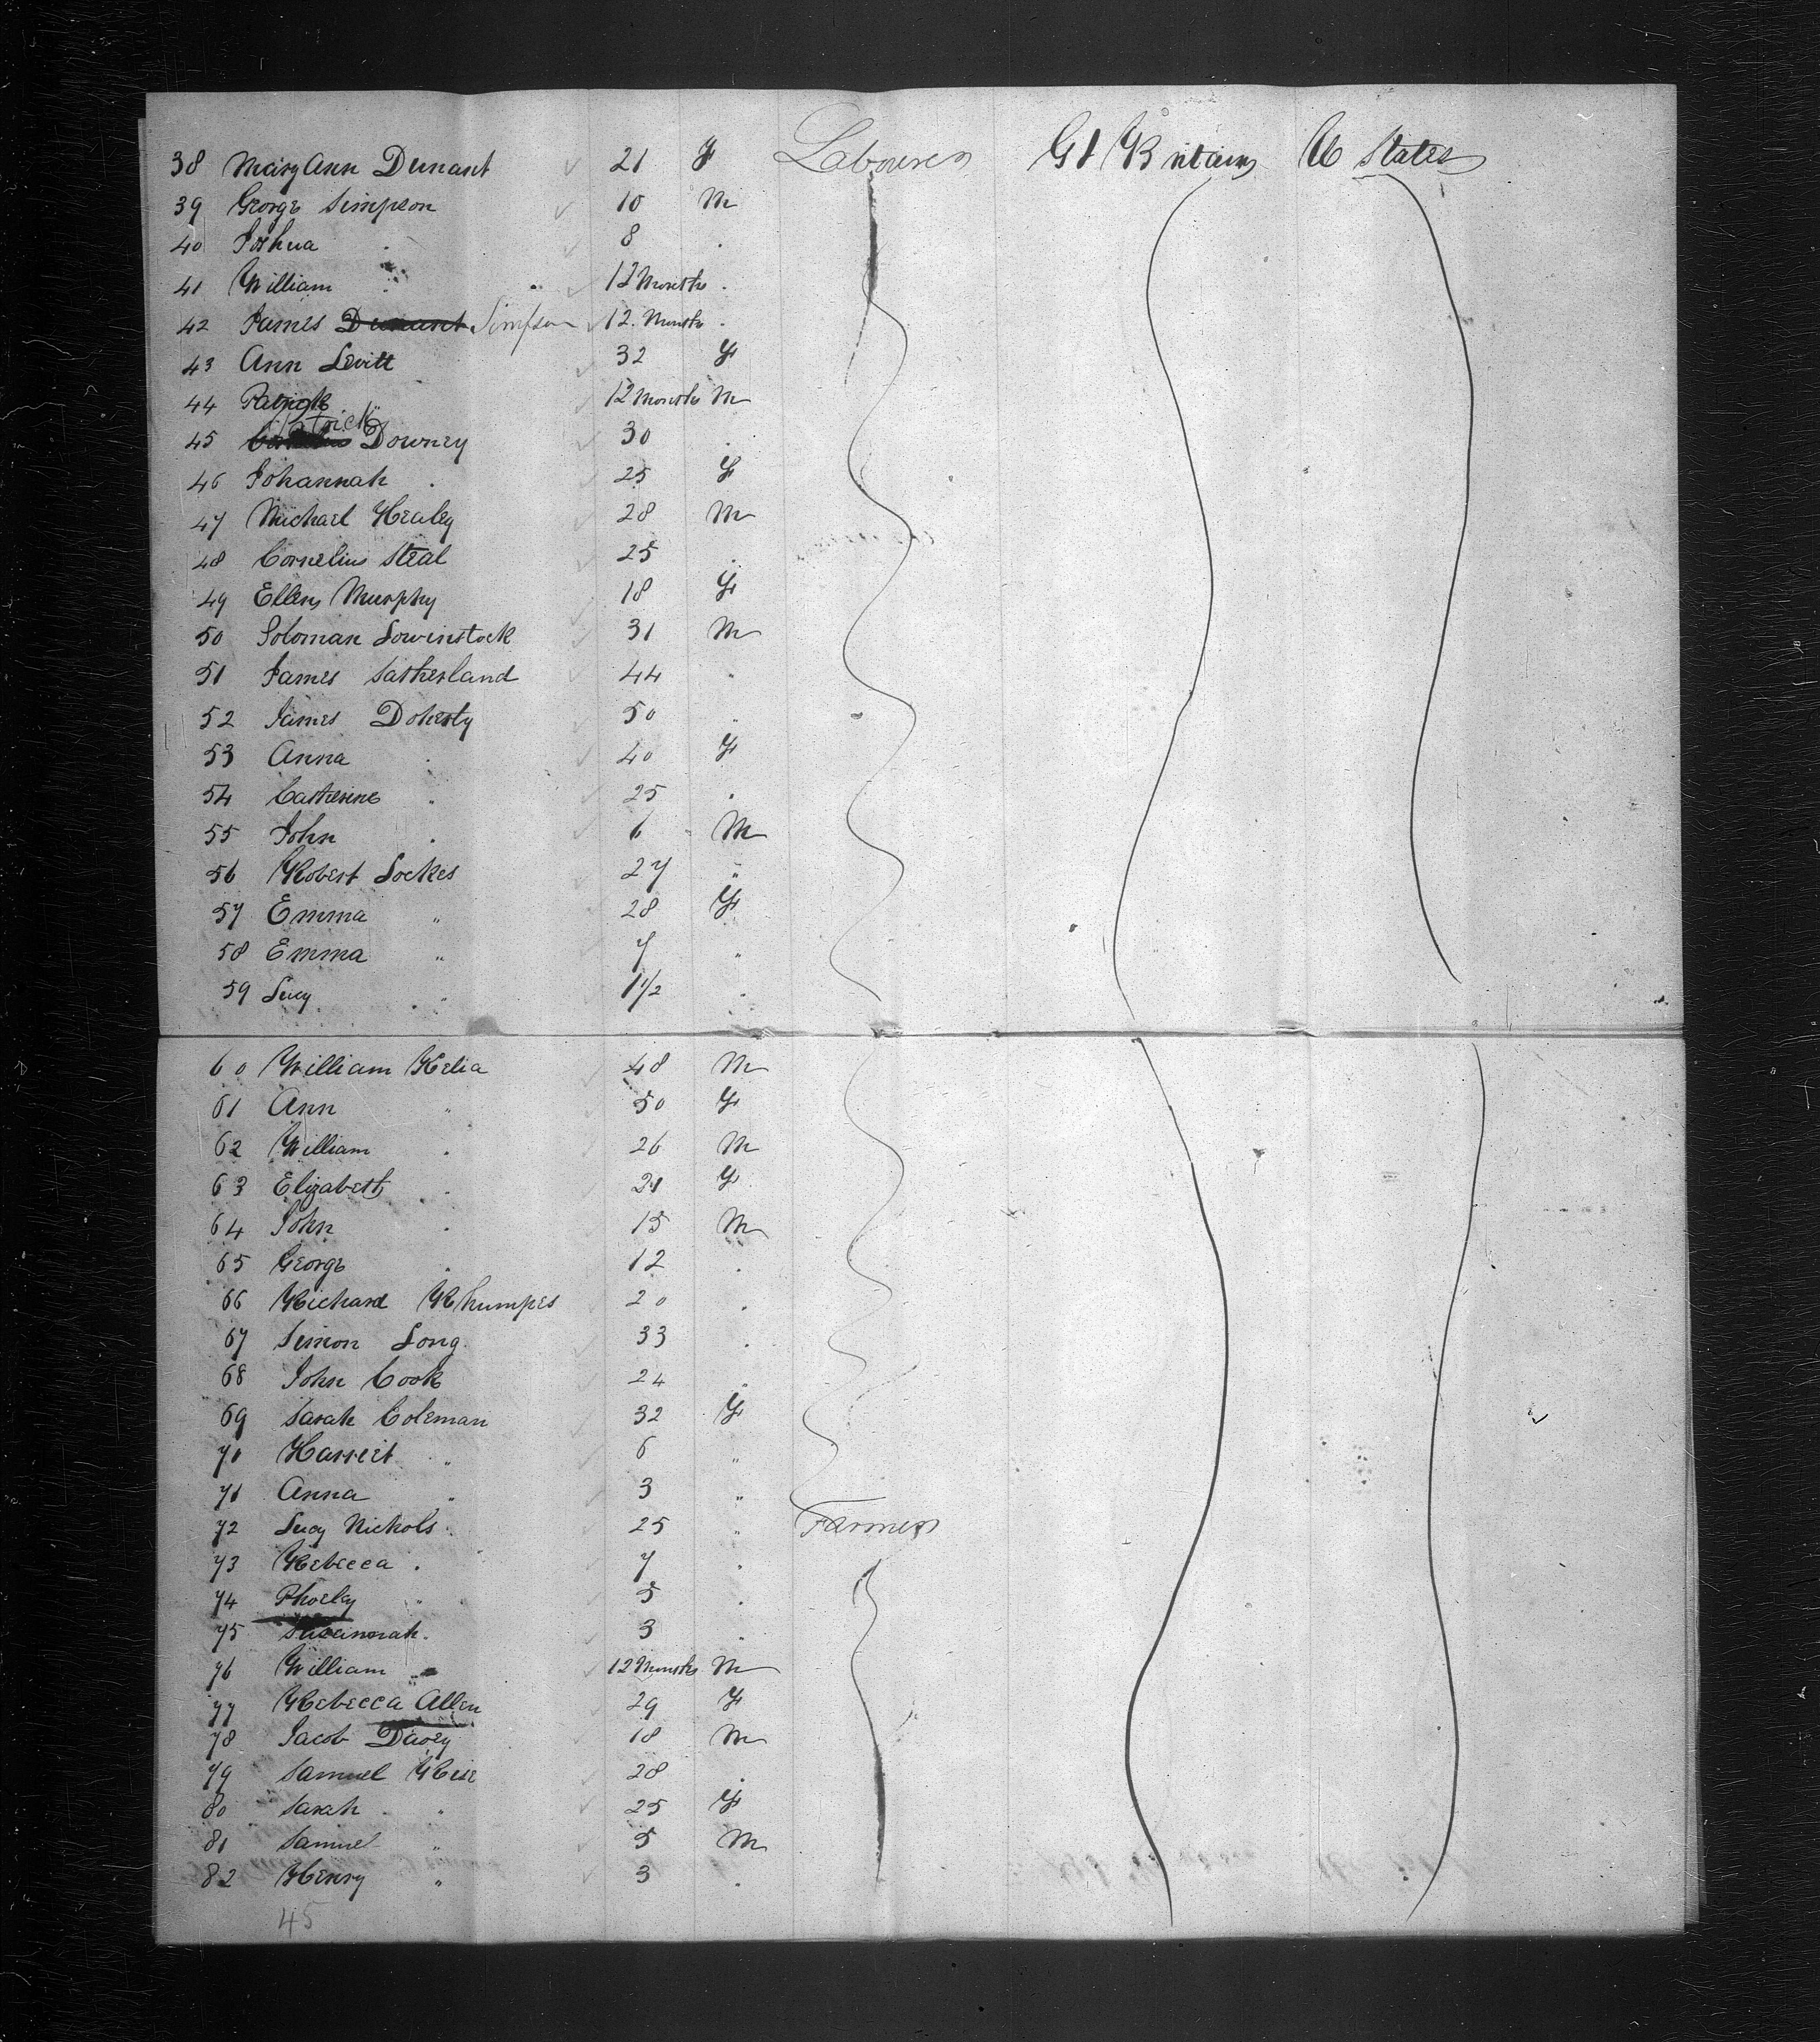 38 Mary Ann Dunant ✓ 21 F Labourers Gt Britain U States
39 George Simpson ✓ 10 M
40 Joshua . ✓ 8 .
41 William . ✓ 12 Months .
42 James Dunant Simpson ✓ 12 Months .
43 Ann Levitt ✓ 32 F
44 Patrick " ✓ 12 Months M
45 Patrick Downey ✓ 30 .
46 Johannah . ✓ 25 F
47 Michael Healey ✓ 28 M
48 Cornelius Steal ✓ 25 .
49 Ellen Murphy ✓ 18 F
50 Soloman Lowinstock ✓ 31 M
51 James Satherland ✓ 44 "
52 James Doherty ✓ 50 "
53 Anna . ✓ 40 F
54 Catherine . ✓ 25 .
55 John . ✓ 6 M
56 Robert Lockes ✓ 27 "
57 Emma " ✓ 28 F
58 Emma " ✓ 7 "
59 Lucy " ✓ 1 1/2 .
60 William Kelia ✓ 48 M
61 Ann " ✓ 50 F
62 William . ✓ 26 M
63 Elizabeth . ✓ 21 F
64 John . ✓ 15 M
65 George . ✓ 12 .
66 Richard Rhumpes ✓ 20 .
67 Simon Long ✓ 33 .
68 John Cook ✓ 24 "
69 Sarah Coleman ✓ 32 F
70 Harreit " ✓ 6 "
71 Anna " ✓ 3 "
72 Lucy Nichols ✓ 25 " Farmers
73 Rebecca . ✓ 7 .
74 Phoeby " ✓ 5 .
75 Susannah . ✓ 3 .
76 William " ✓ 12 Months M
77 Rebecca Allen ✓ 29 F
78 Jacob Davey ✓ 18 M
79 Samuel Rese ✓ 28 .
80 Sarah " ✓ 25 F
81 Samuel " ✓ 5 M
82 Henry " ✓ 3 .
45